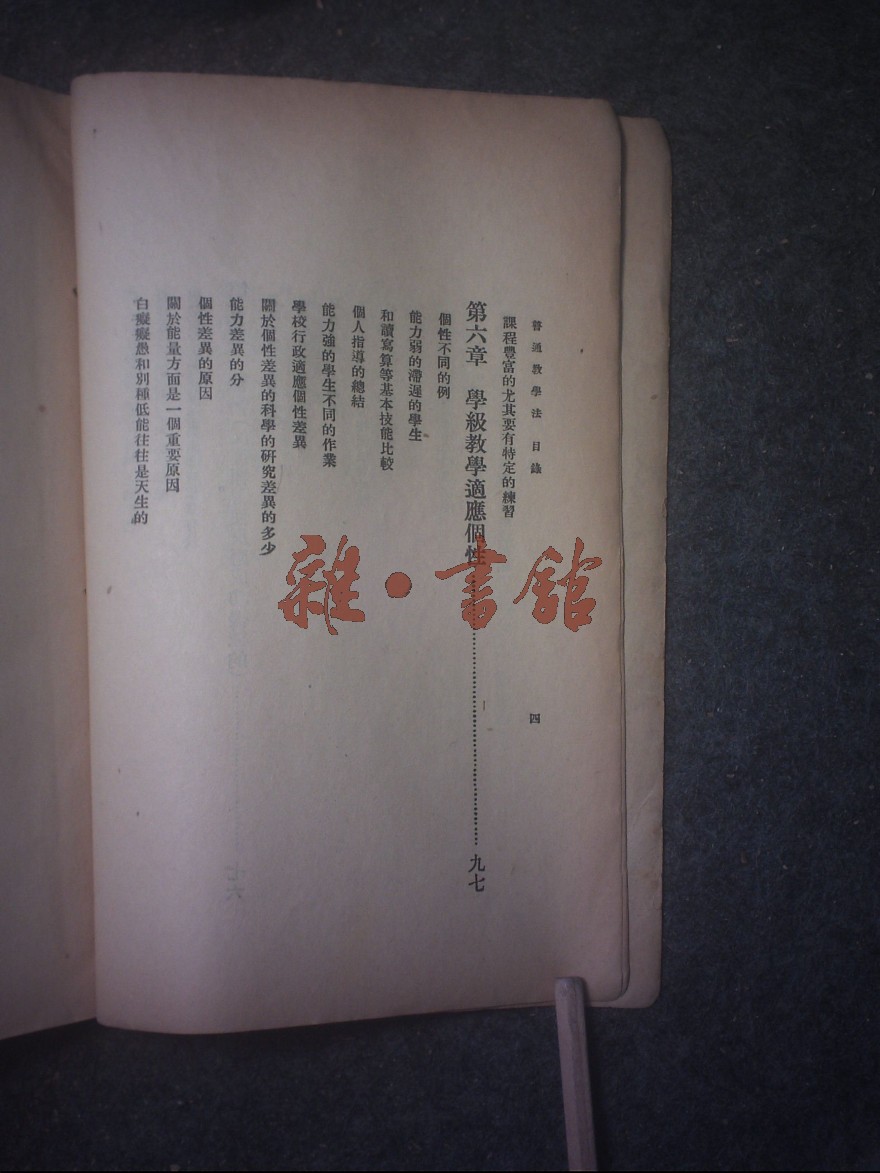 普通教學法 目錄 四
課程豐富的尤其要有特定的練習
第六章 學級教學適應個性……………………九七
個性不同的例
能力弱的滯遲的學生
和讀寫算等基本技能比較
個人指導的總結
能力強的學生不同的作業
學校行政適應個性差異
關於個性差異的科學的研究差異的多少
能力差異的分
個性差異的原因
關於能量方面是一個重要原因
白癡癡愚和別種低能往往是天生的
雜·書館